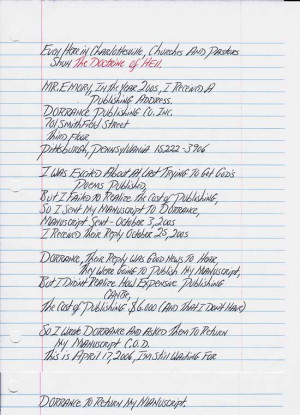 Even Here in Charlottesville, Churches And Pastors
Shun The Doctrine of Hell.
MR. Emory, In the Year 2005, I Received A
Publishing Address.
DORRANCE Publishing Co. Inc.
701 Smithfield Street
Third Floor
Pittsburgh, Pennsylvania 15222-3906
I Was Excited About At Last Trying To Get God's
Poems Published,
But I Failed to Realize the Cost of Publishing,
So I Sent My Manuscript To Dorrance,
Manuscript Sent - October 3, 2005
I Received Their Reply October 25, 2005
Dorrance, Their Reply Was Good News To Hear,
They Were Going To Publish My Manuscript,
But I Didn't Realize How Expensive Publishing
Can Be,
The Cost of Publishing $6,000 (And That I Don't Have)
So I Wrote Dorrance And Asked Them To Return
My Manuscript C.O.D.
This is April 17, 2006, I'm Still Waiting For
Dorrance To Return My Manuscript.